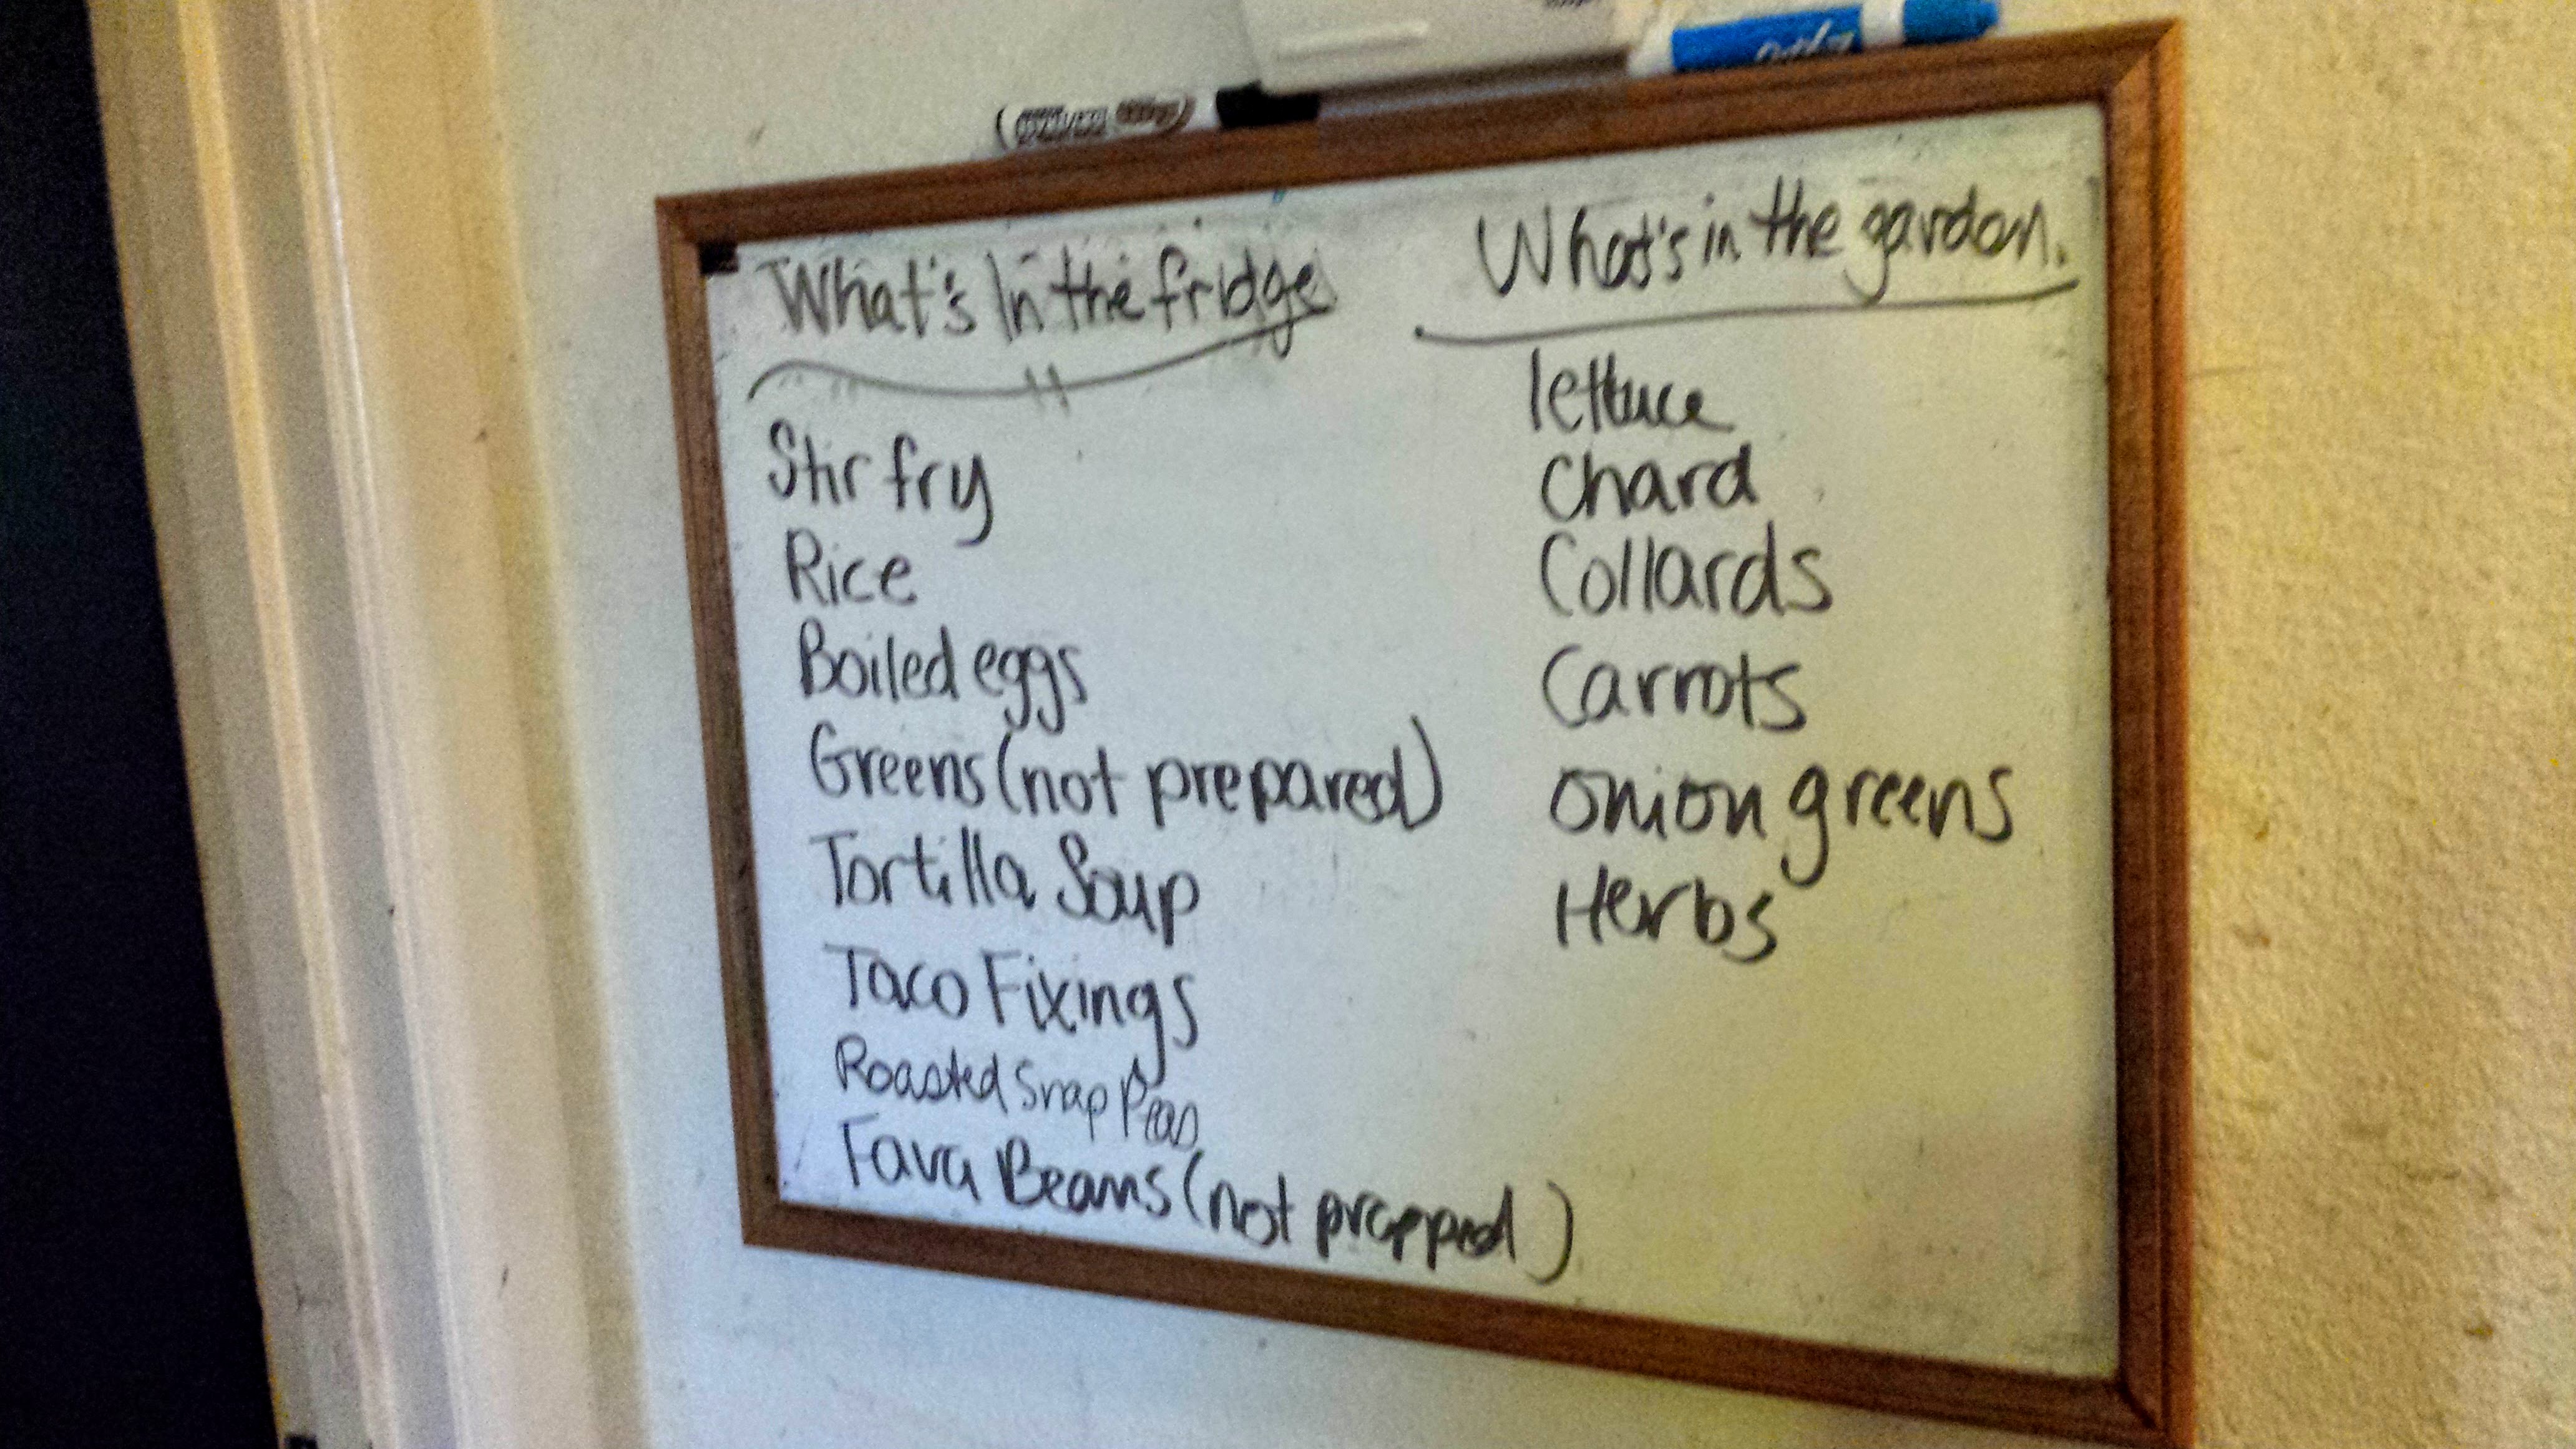 What's In the fridge
Stir fry
Rice
Boiled eggs
Greens (not prepared)
Tortilla Soup
Taco Fixings
Roasted Snap Peas
Fava Beans (not prepped)
What's in the garden.
lettuce
Chard
Collards
Carrots
onion greens
Herbs